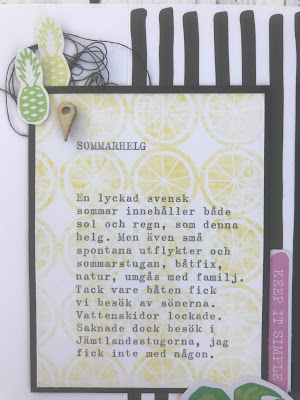 SOMMARHELG
En lyckad svensk
sommar innehåller både
sol och regn, som denna
helg. Men även små
spontana utflykter och
sommarstugan, båtfix,
natur, umgås med familj.
Tack vare båten fick
vi besök av sönerna.
Vattenskidor lockade.
Saknade dock besök i
Jämtlandsstugorna, jag
fick inte med någon.
KEEP IT SIMPLE